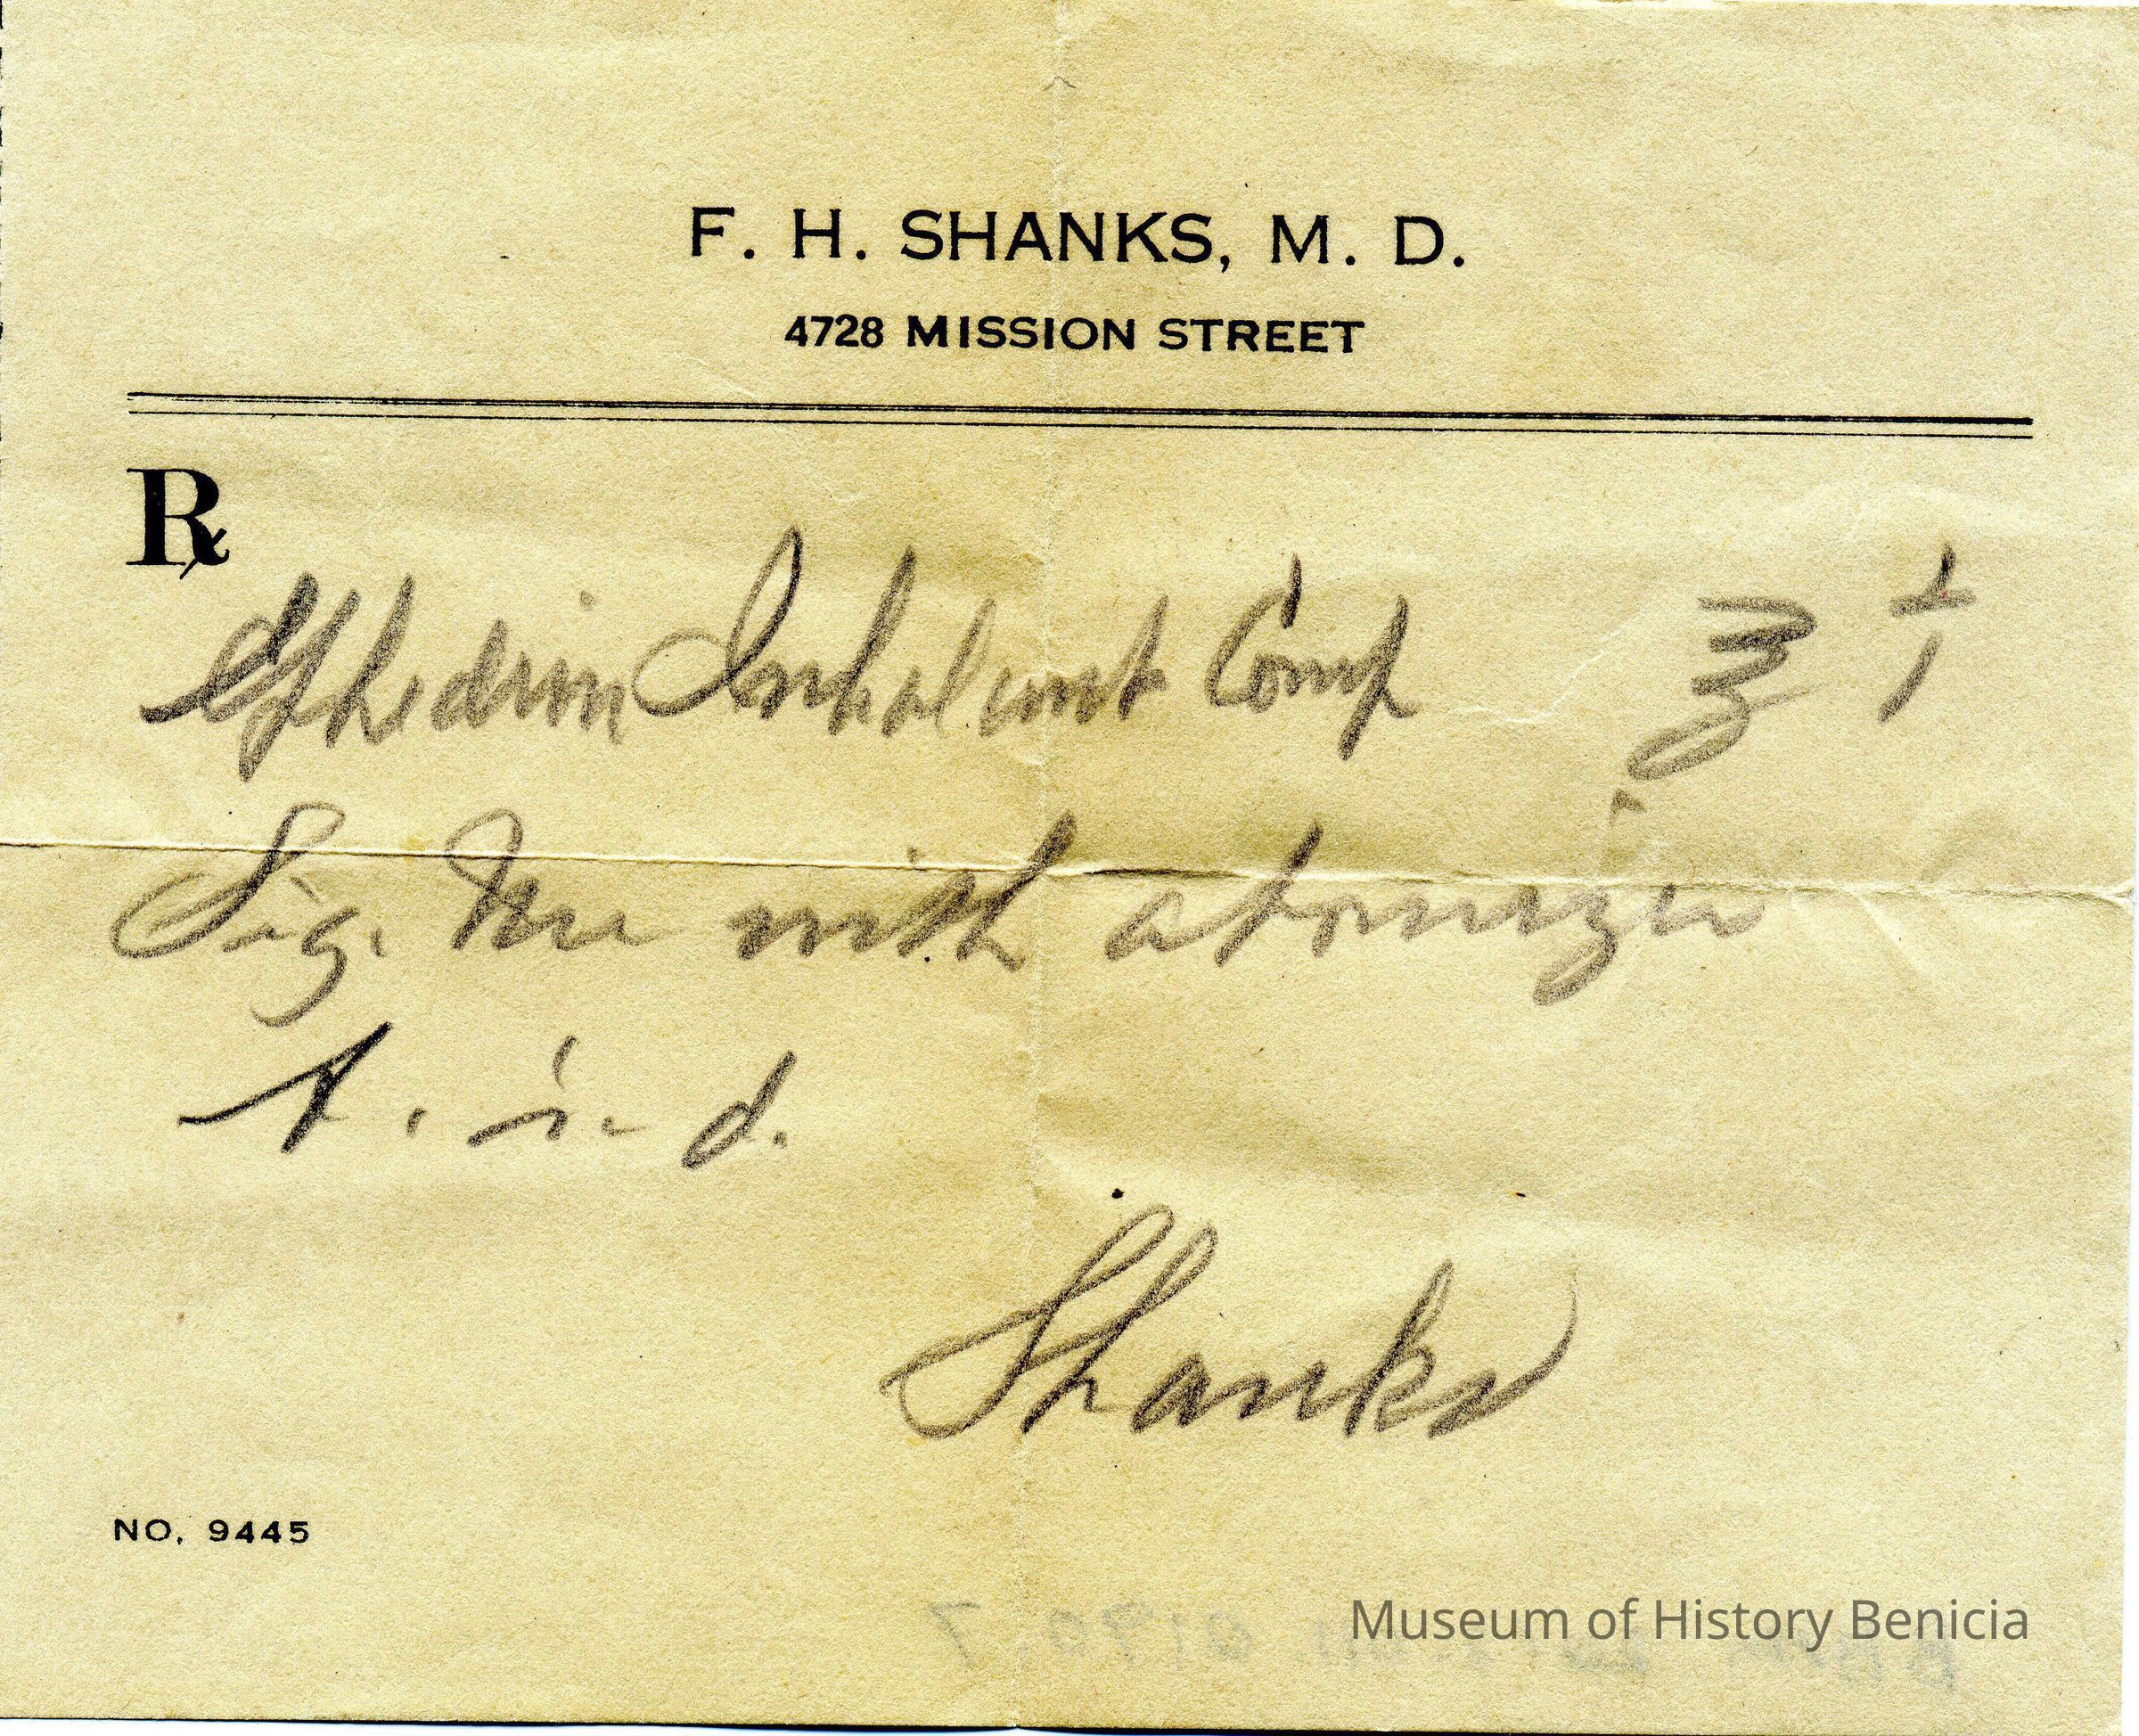 F. H. SHANKS, M. D.
4728 MISSION STREET
℞
Ephedrin Inhalant Comp ℥ i
Sig. Use with atomizer
t. i. d.
Shanks
NO. 9445
Museum of History Benicia